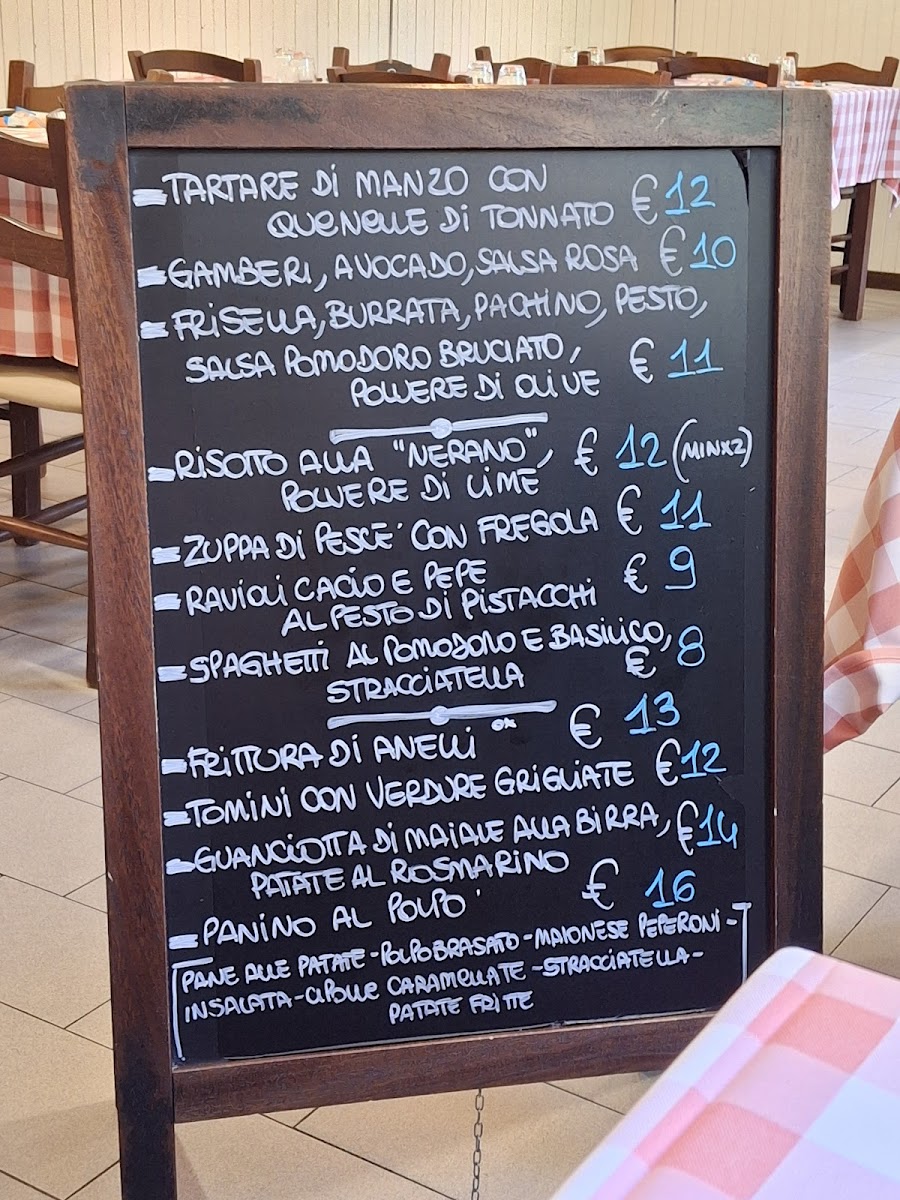 -TARTARE DI MANZO CON
QUENELLE DI TONNATO € 12
-GAMBERI, AVOCADO, SALSA ROSA € 10
-FRISELLA, BURRATA, PACHINO, PESTO,
SALSA POMODORO BRUCIATO,
POLVERE DI OLIVE € 11
-RISOTTO ALLA "NERANO", € 12 (MINX2)
POLVERE DI LIME
-ZUPPA DI PESCE CON FREGOLA € 11
-RAVIOLI CACIO E PEPE € 9
AL PESTO DI PISTACCHI
-SPAGHETTI AL POMODORO E BASILICO,
STRACCIATELLA € 8
-FRITTURA DI ANELLI € 13
-TOMINI CON VERDURE GRIGLIATE € 12
-GUANCIOTTA DI MAIALE ALLA BIRRA, € 14
PATATE AL ROSMARINO
-PANINO AL POLPO € 16
PANE ALLE PATATE-POLPO BRASATO-MAIONESE PEPERONI-
INSALATA-CIPOLLE CARAMELLATE-STRACCIATELLA-
PATATE FRITTE